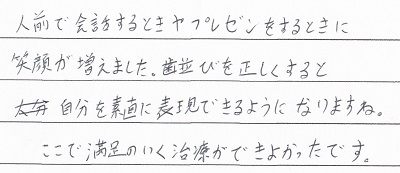 人前で会話するときやプレゼンをするときに
笑顔が増えました。歯並びを正しくすると
自分を素直に表現できるようになりますね。
ここで満足のいく治療ができよかったです。